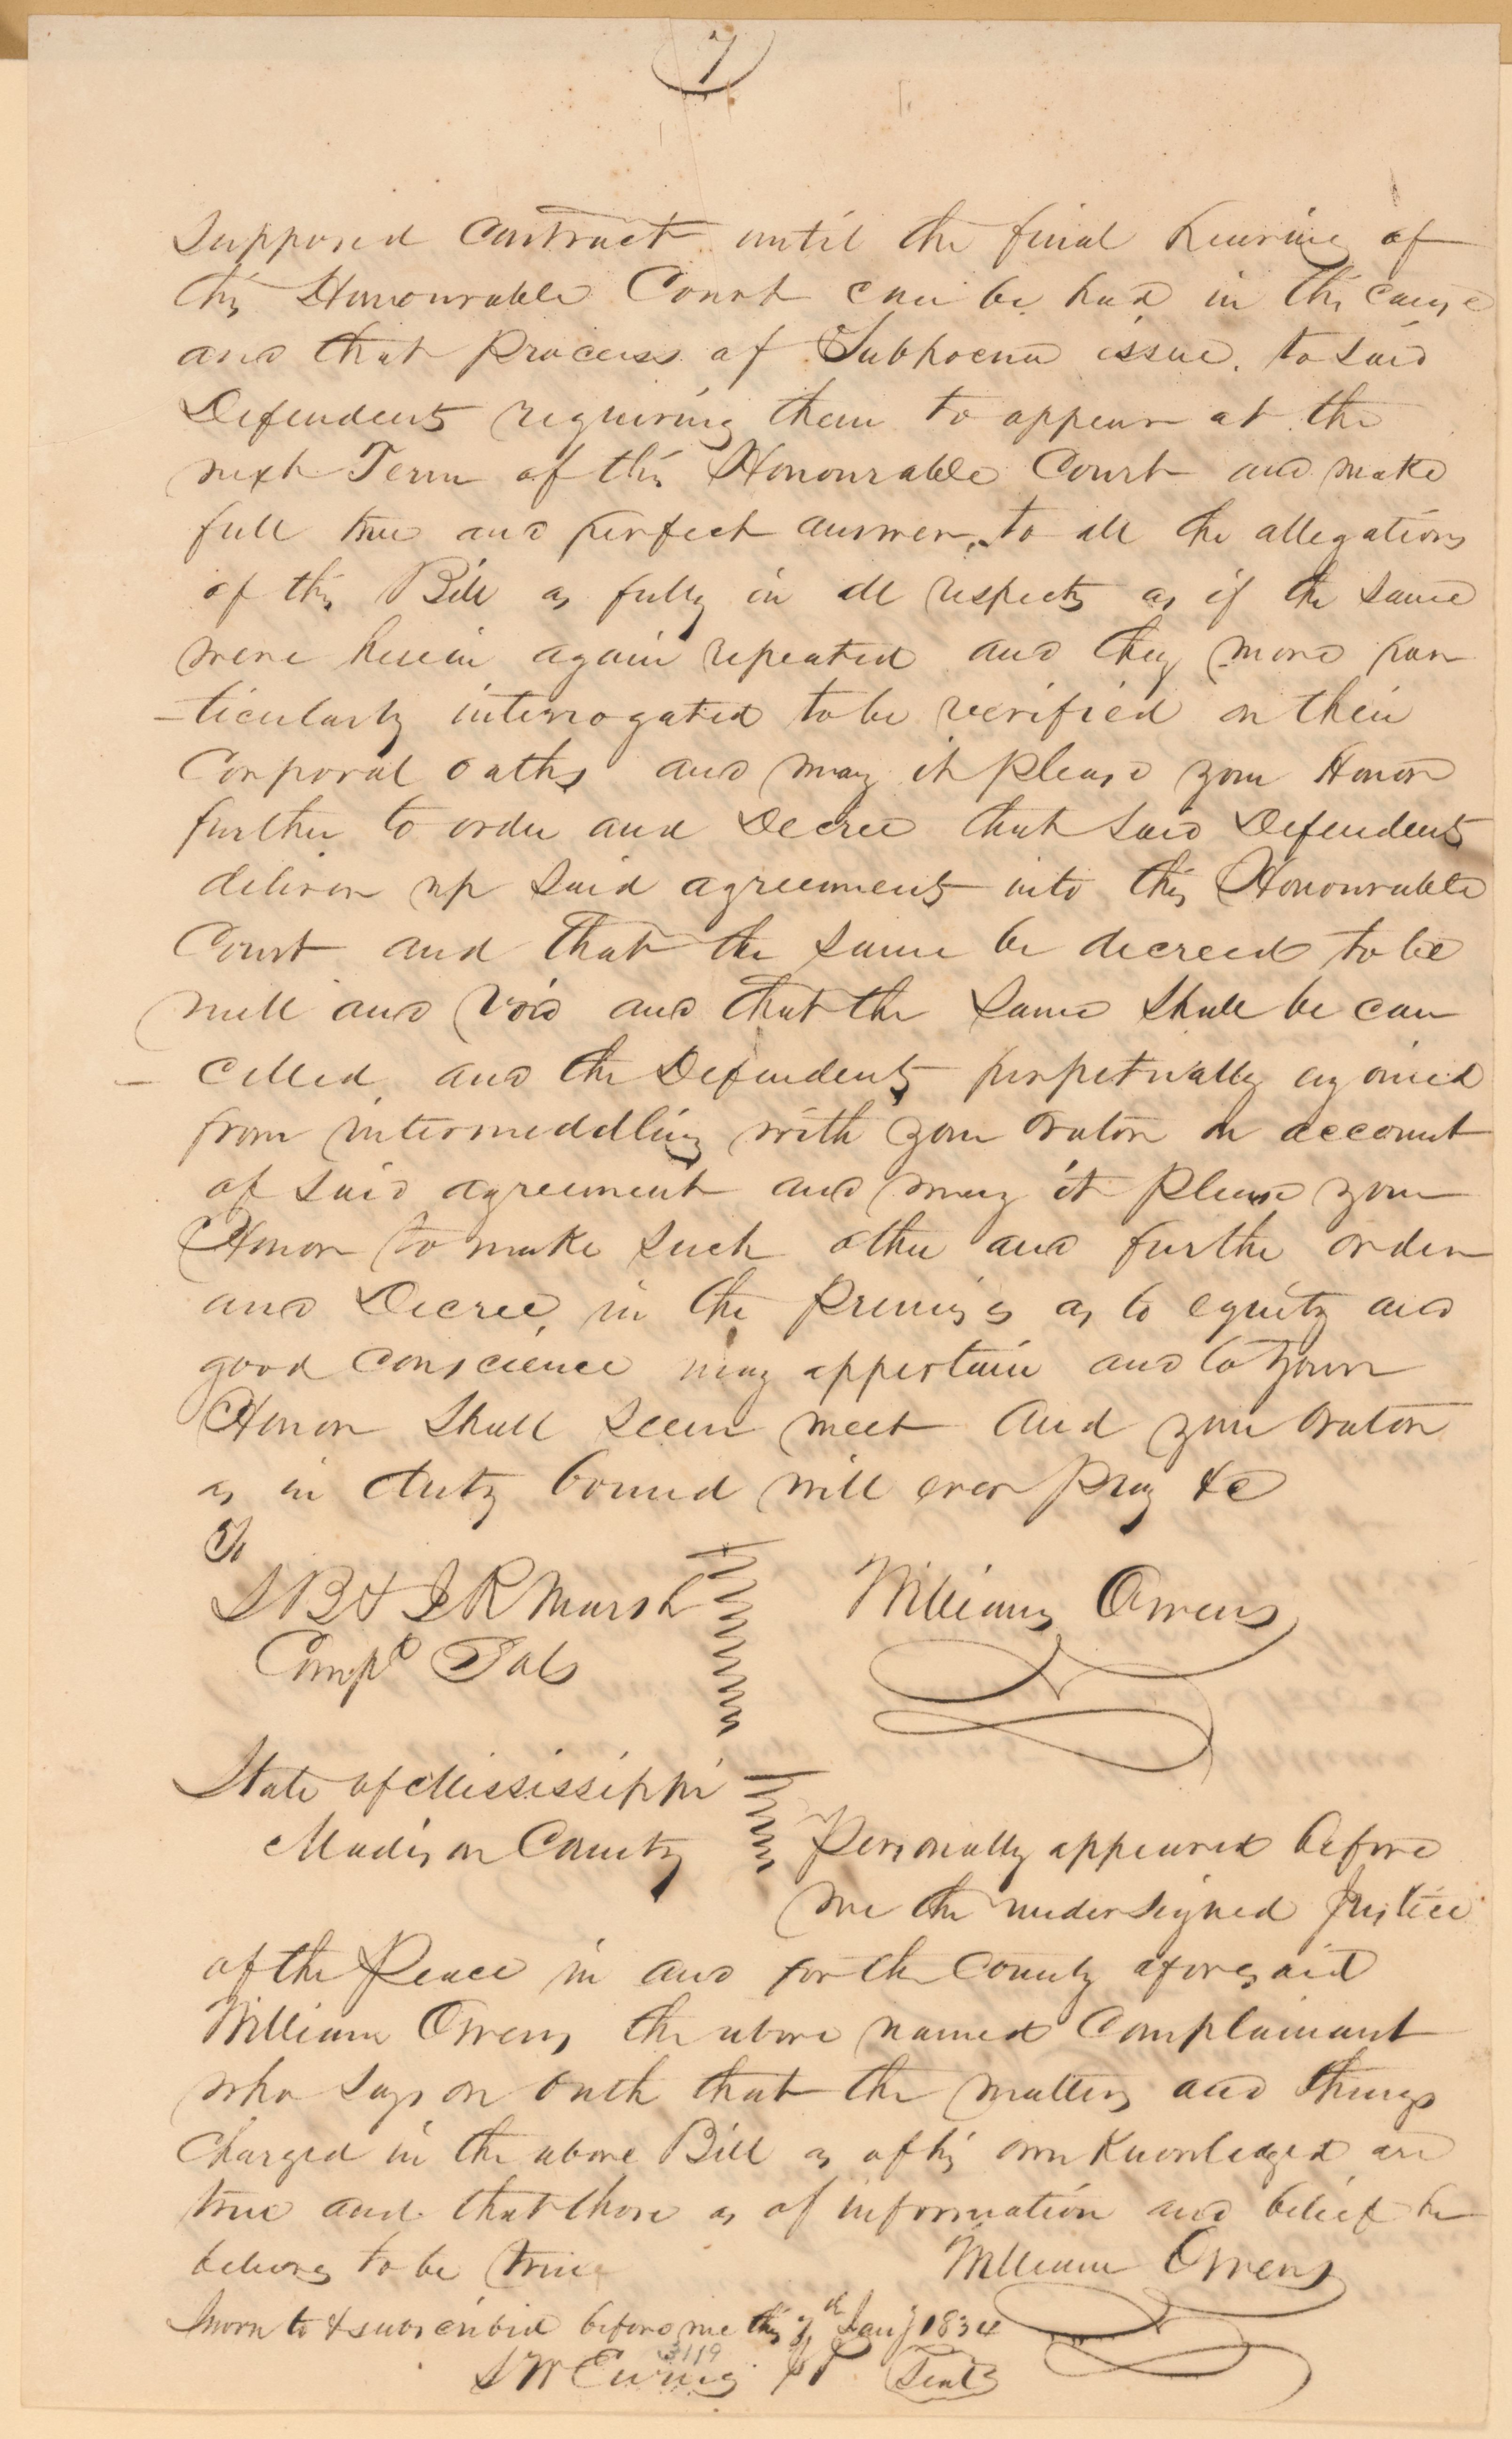 7
Supposed Contract until the final hearing of
this Honourable Court can be had in this cause
and that process of Subpoena issue to said
Defendents requiring them to appear at the
next Term of this Honourable Court and make
full true and perfect answer, to all the allegations
of this Bill as fully in all respects as if the same
were herein again repeated and they more par
-ticularly interrogated to be verified on their
Corporal oaths and may it please your Honor
further to order and Decree that said Defendents
deliver up said agreements into this Honourable
Court and that the same be decreed to be
null and void and that the same shall be can
-celled, and the Defendents perpetually enjoined
from intermeddling with your orator on account
of said agreement and may it please your
Honor to make such other and further order
and Decree, in the premises as to equity and
good conscience may appertain and to your
Honor shall seem meet And your orator
as in duty bound will ever pray &c
S B & J R Marsh
Compt Sols
William Owens
State of Mississippi
Madison County
Personally appeared before
me the undersigned Justice
of the Peace in and for the County aforesaid
William Owens the above named Complainant
who says on oath that the matters and things
charged in the above Bill as of his own knowledged are
true and that those as of information and belief he
believes to be true
William Owens
Sworn to & subscribed before me this 7th Jany 1834
3119
S W Ewing JP Seal